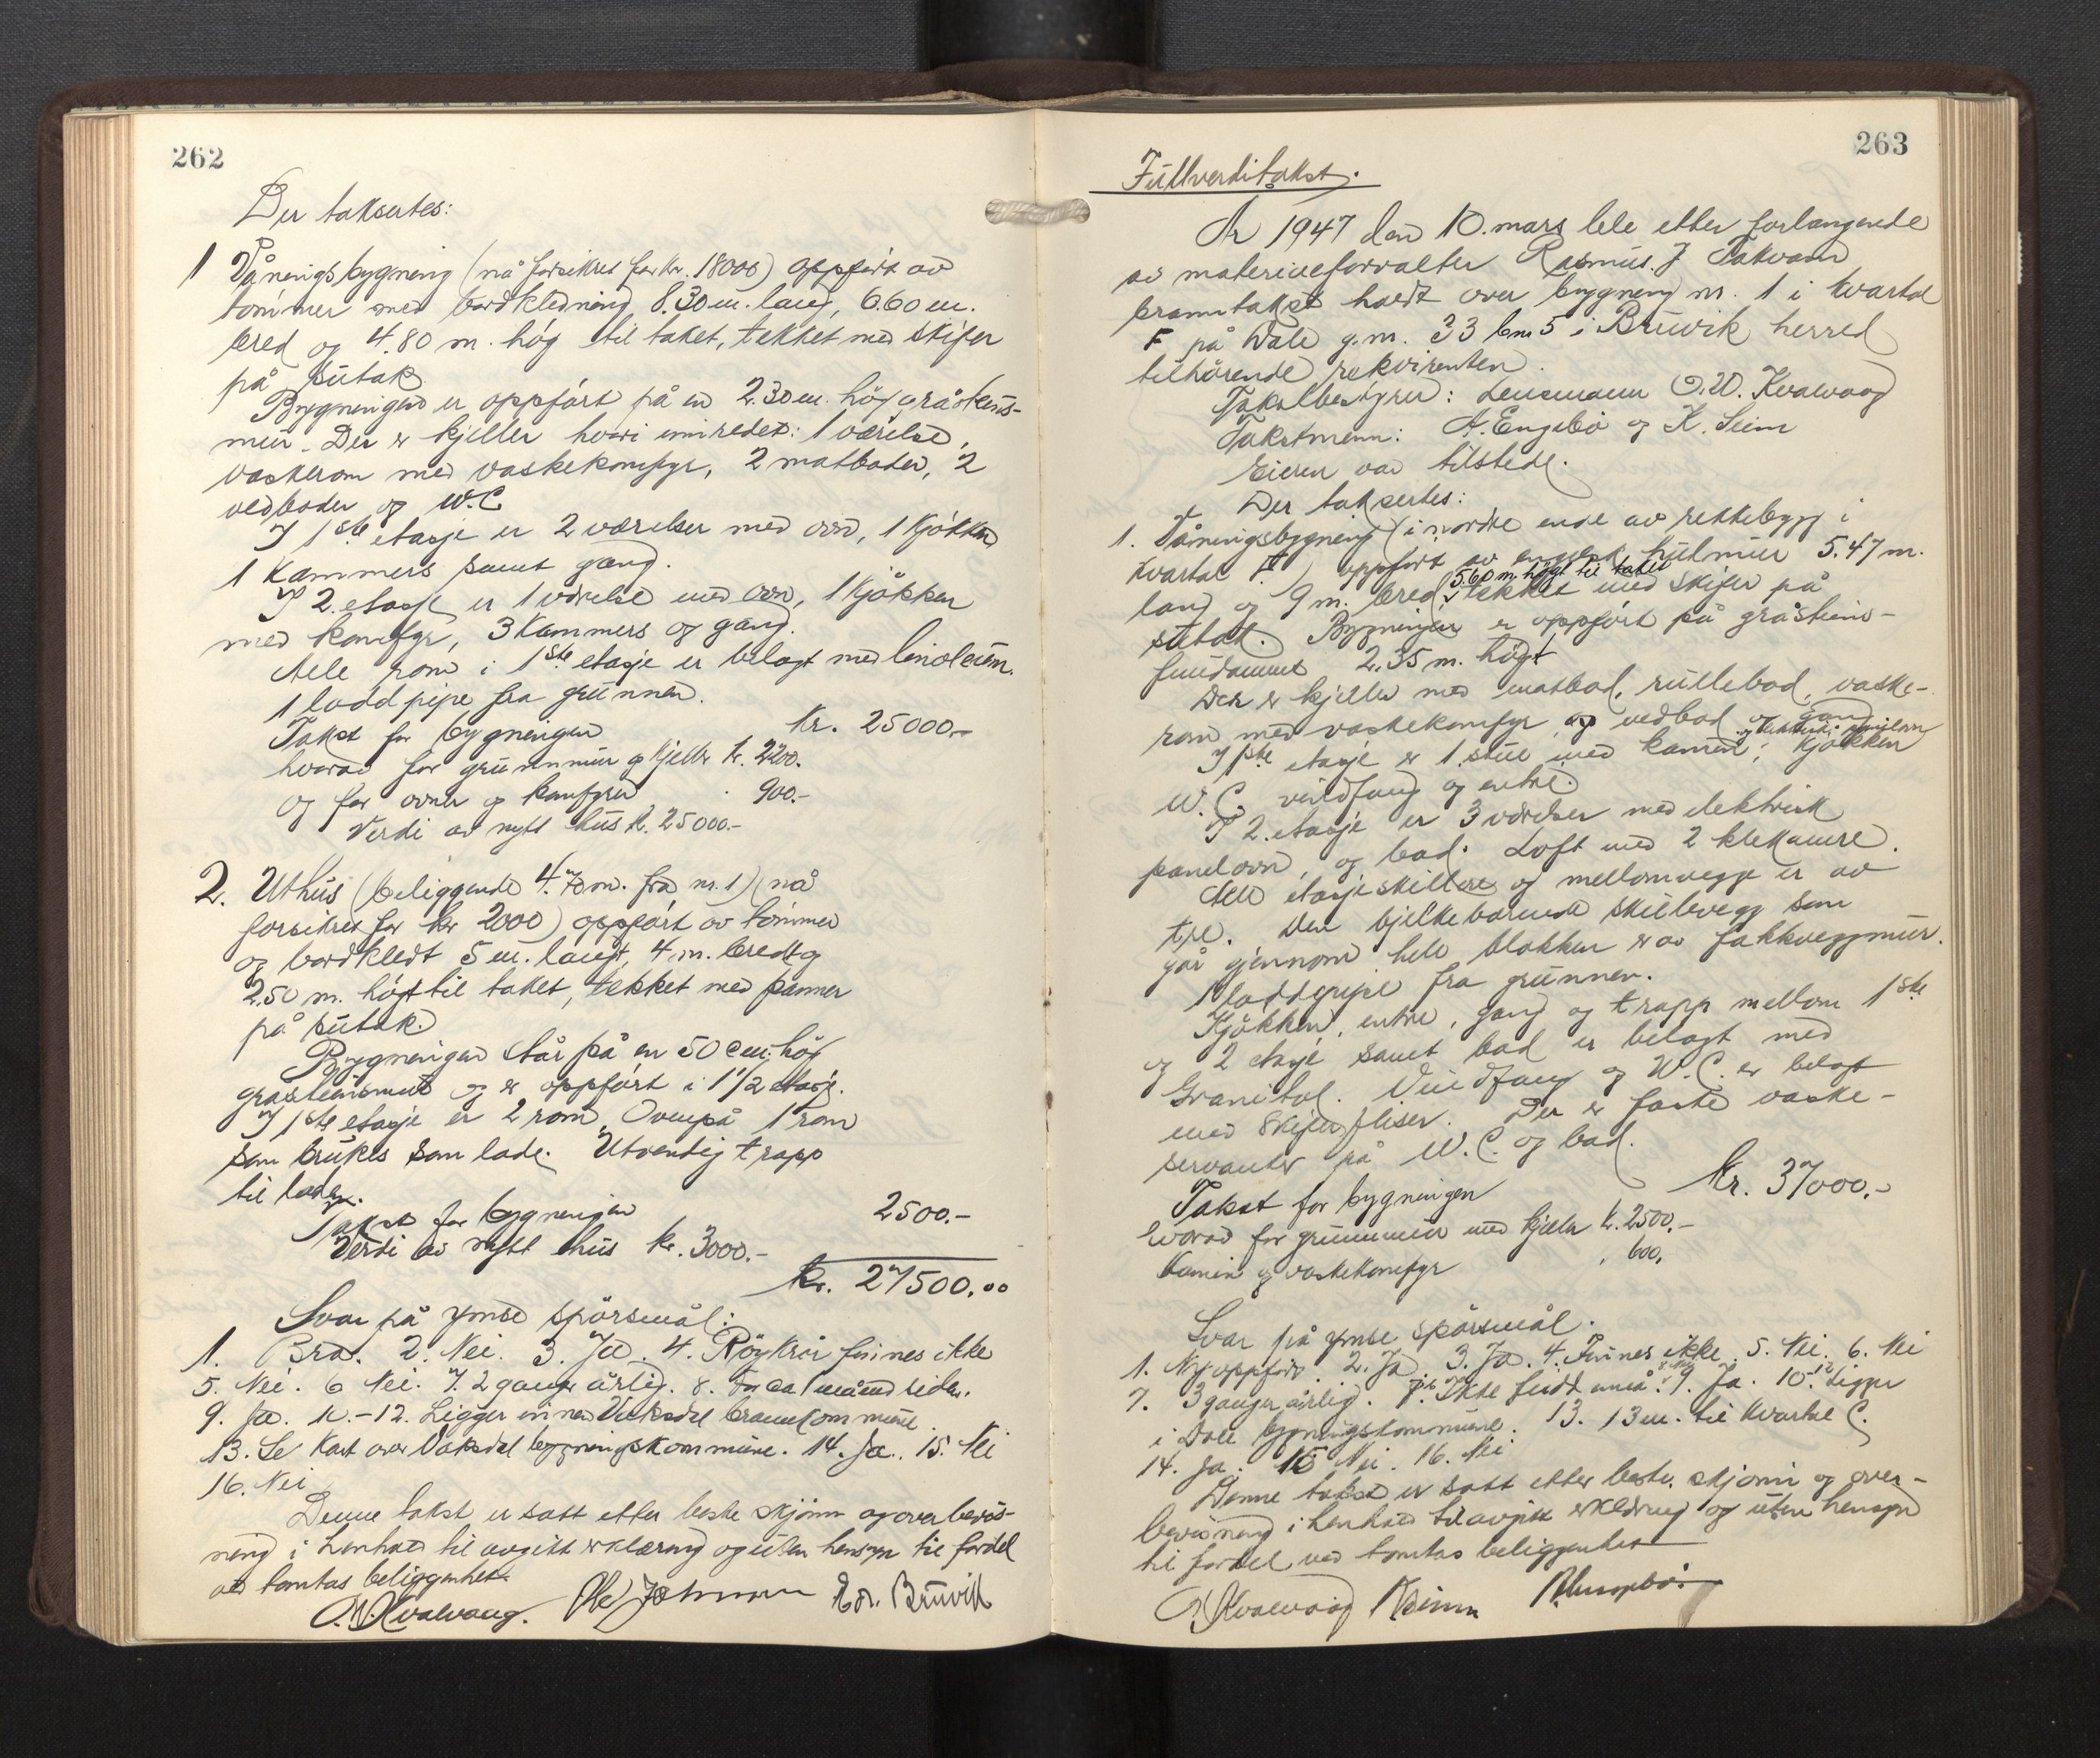 262
Der taksertes:
1 Våningsbygning (nå forsikret for kr. 18000) oppført av
tømmer med bordkledning 8.30 m. lang, 6.60 m.
bred og 4.80 m. høg til taket, tekket med skifer
på sutak
Bygningen er oppført på en 2.30 m. høg gråsteins-
mur. Der er kjeller hvori innredet: 1 værelse,
vaskerom med vaskekomfyr, 2 matboder, 2
vedboder og W.C
I 1ste etasje er 2 værelser med ovn, 1 kjøkken
1 Kammers samt gang.
I 2. etasje er 1 værelse med ovn, 1 kjøkken
med komfyr, 3 Kammers og gang.
Alle rom i 1ste etasje er belagt med linoleum.
1 lodd pipe fra grunnen.
Takst for bygningen Kr. 25000.-
hvorav for grunnmur og kjeller kr. 2200.
og for ovner og komfyrer 900.-
Verdi av nytt hus k. 25000.-
2. Uthus (beliggende 4.70 m. fra nr. 1) (nå
forsikret for kr 2000) oppført av tømmer
og bordkledt 5 m. langt, 4 m. bredt og
2.50 m. høgt til taket, tekket med panner
på sutak.
Bygningen står på en 50 cm. høg
gråsteinsmur og er oppført i 1 1/2 etasje.
I 1ste etasje er 2 rom. Ovenpå 1 rom
som brukes som lade. Utvendig trapp
til laden.
Takst for bygningen 2500.-
Verdi av nytt hus kr. 3000.-
kr. 27500.00
Svar på ymse spørsmål:
1. Bra. 2. Nei. 3. Ja. 4. Røykrør finnes ikke
5. Nei. 6 Nei. 7. 2 ganger årlig. 8. For ca 1 måned siden.
9. Ja. 10.-12. Ligger innen Vaksdal brannkommune.
13. Se kart over Vaksdal bygningskommune. 14. Ja. 15. Nei
16. Nei
Denne takst er satt etter beste skjønn og overbevis-
ning i henhold til avgitt erklæring og uten hensyn til fordel
ved tomtas beliggenhet.
O. W. Kvalvaag. Ole Johnsen Edv. Bruvik
263
Fullverditakst.
År 1947 den 10. mars ble etter forlangende
av materialforvalter Rasmus J Takvam
branntakst holdt over bygning nr. 1 i kvartal
F på Dale g.nr. 33 bnr 5 i Bruvik herred
tilhørende rekvirenten.
Takstbestyrer: Lensmann O. W. Kvalvaag
Takstmenn: A. Engebø og K. Seim
Eieren var tilstede.
Der taksertes:
1. Våningsbygning (i nordre ende av rekkebygg i
kvartal F) oppført av engelsk hulmur 5.47 m.
5.60 m. høgt til taket
lang og 9 m. bred, tekket med skifer på
sutak. Bygningen er oppført på gråsteins-
fundament 2.35 m. høgt
Der er kjeller med matbod, rullebod, vaske-
rom med vaskekomfyr og vedbod og gang
I 1ste etasje er 1 stue med kamin, kjøkken
W.C. vindfang og entre.
I 2. etasje er 3 værelser med elektrisk
panelovn, og bad. Loft med 2 klekamre.
Alle etasjeskillere og mellomvegge er av
tre. Den bjelkebærende skillevegg som
går gjennom hele blokken er av fakkveggmur.
1 loddpipe fra grunnen.
Kjøkken, entre, gang og trapp mellom 1ste
og 2 etasje samt bad er belagt med
Granitol. Vindfang og W.C. er belagt
med skiferfliser. Der er faste vaske-
servanter på W.C. og bad.
Takst for bygningen Kr. 37000.-
hvorav for grunnmur med kjeller k. 2500.-
Kamin og vaskekomfyr 600.
Svar på ymse spørsmål.
1. Ny oppført. 2. Ja. 3. Ja. 4. Finnes ikke. 5. Nei. 6. Nei
7. 3 ganger årlig. 8. Ikke fudd ennå. 9. Ja. 10-12. Ligger
i Dale bygningskommune. 13. 13 m. til kvartal C.
14. Ja. 15 Nei. 16. Nei
Denne takst er satt etter beste skjønn og over-
bevisning i henhold til avgitt erklæring og uten hensyn
til fordel ved tomtas beliggenhet
O. W. Kvalvaag K Seim A. Engebø.